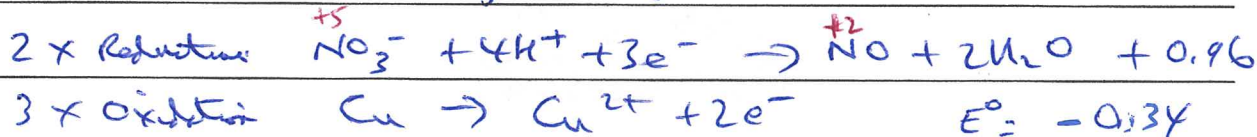 +5 +2
2 x Reduction NO₃⁻ + 4H⁺ + 3e⁻ → NO + 2H₂O + 0.96
3 x Oxidation Cu → Cu²⁺ + 2e⁻ E⁰ = - 0.34